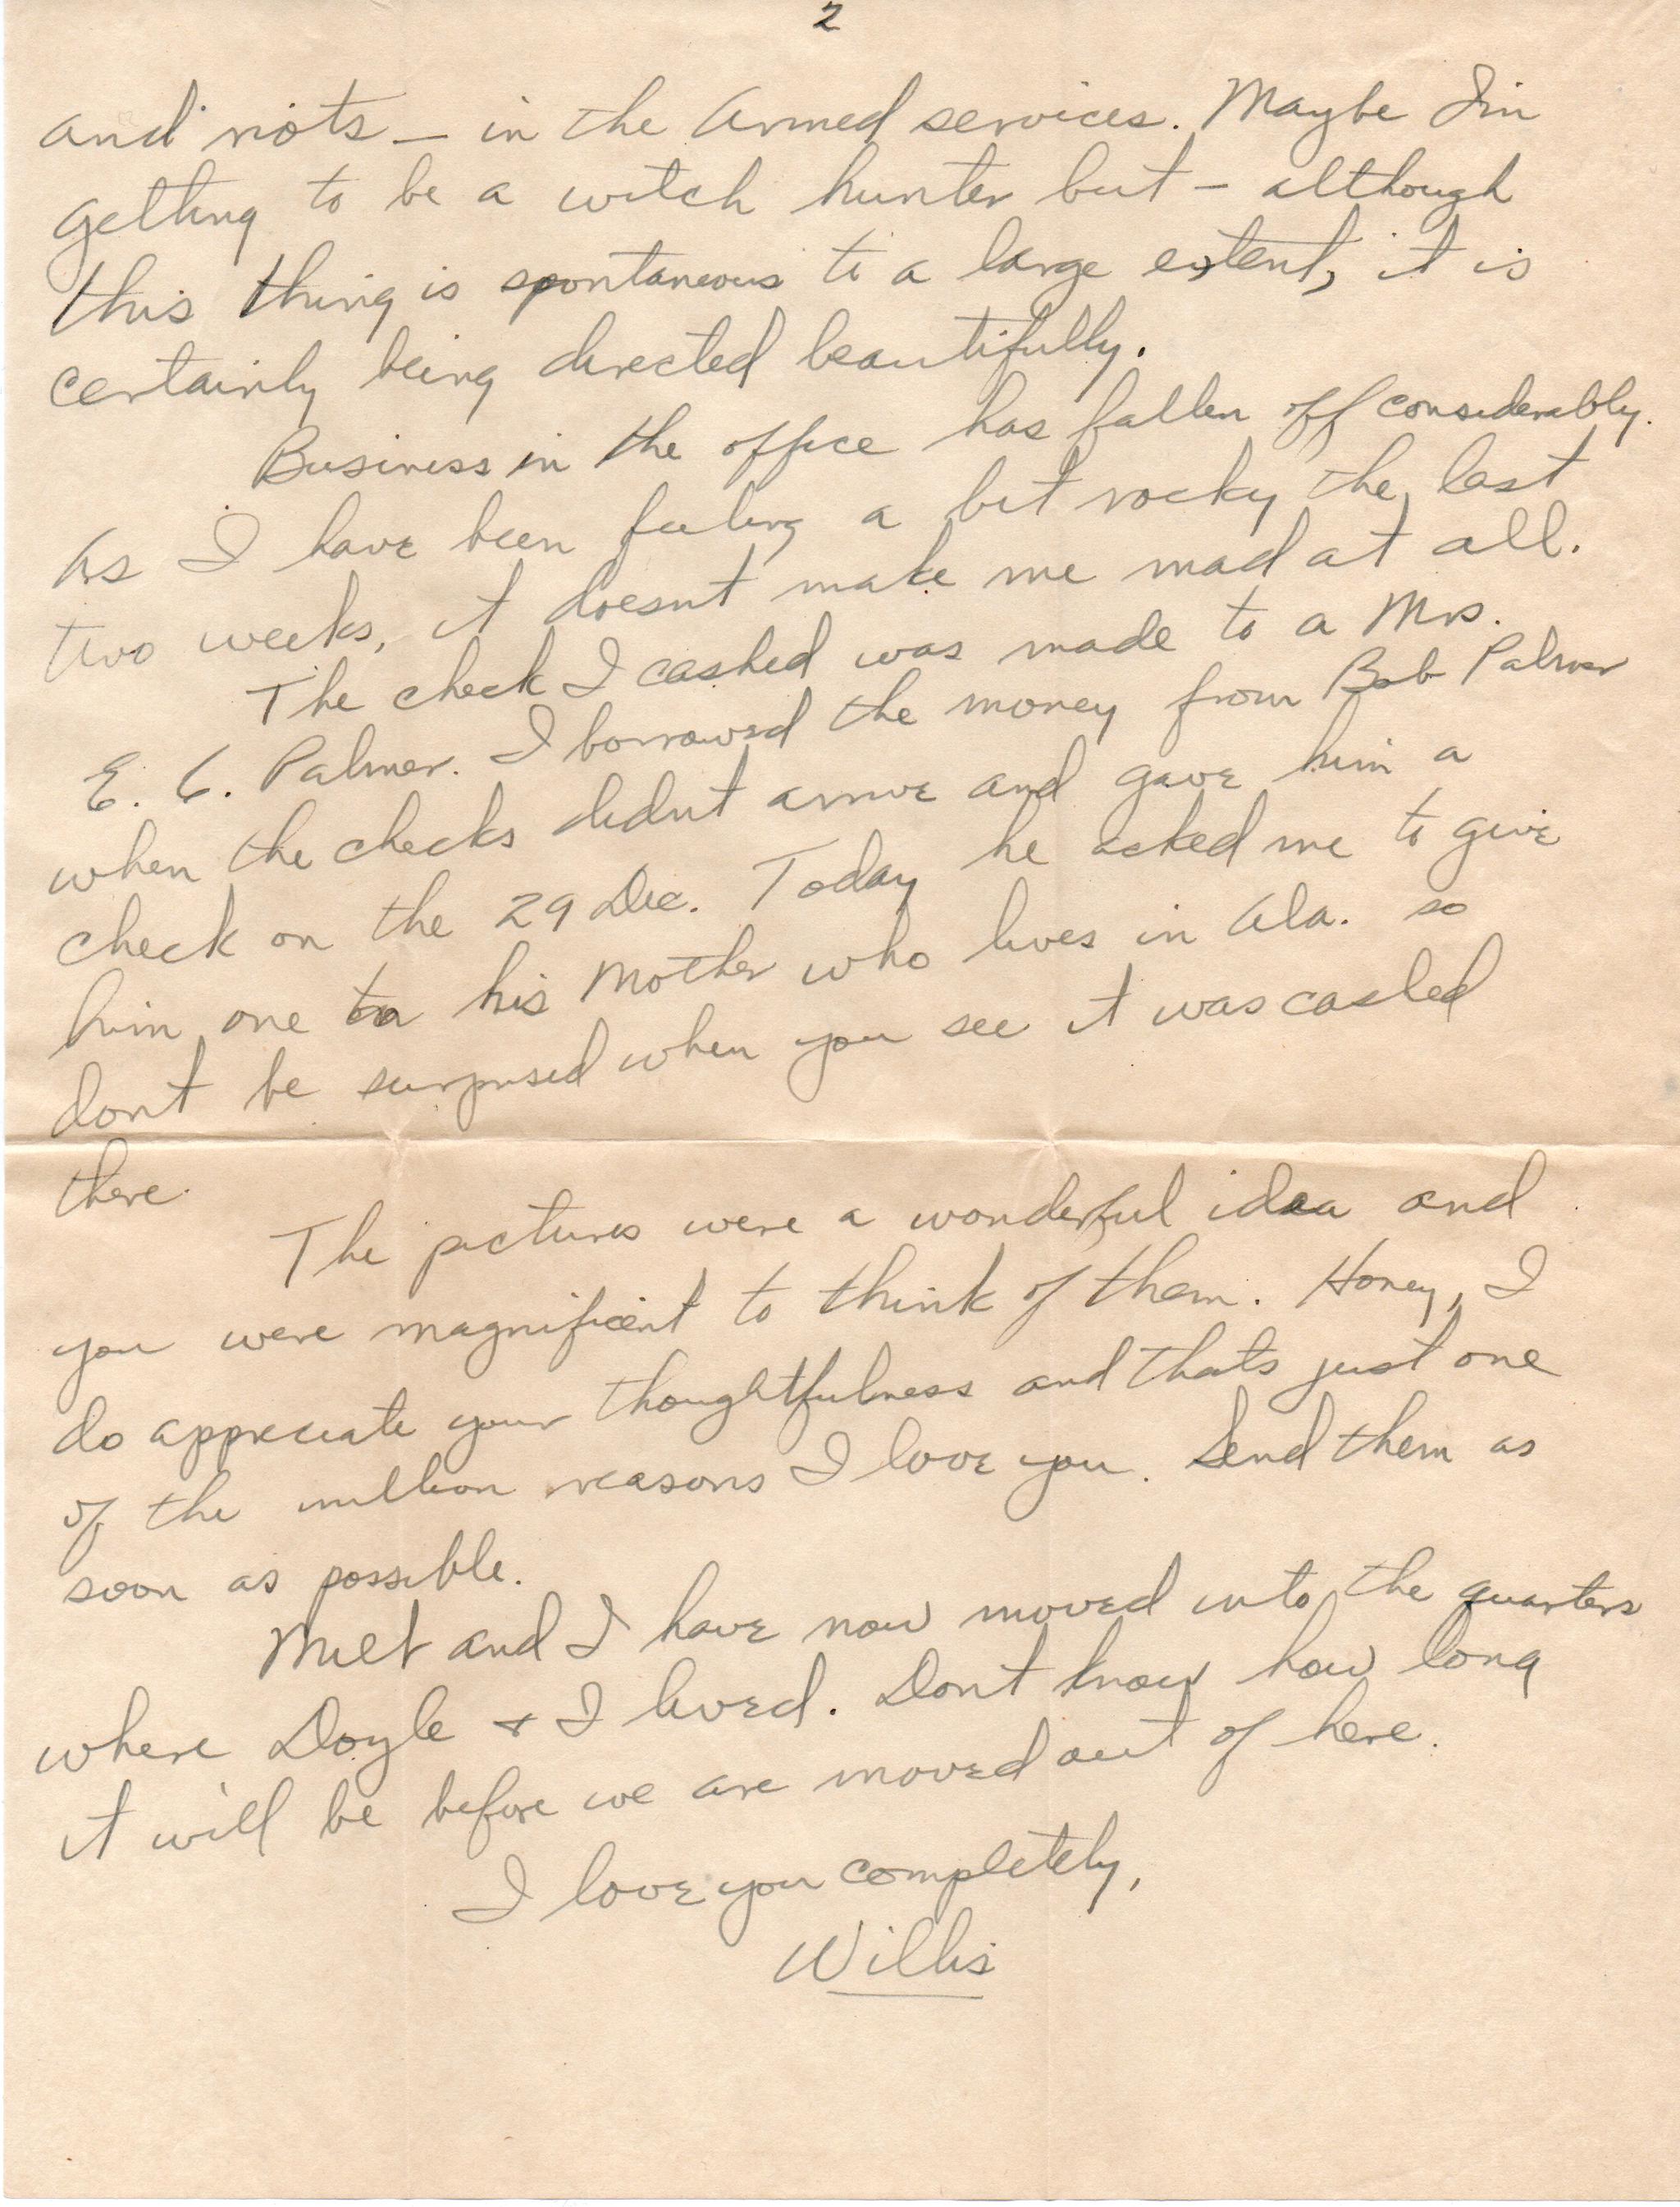 2
and riots – in the Armed services. Maybe Im
getting to be a witch hunter but – although
this thing is spontaneous to a large extent, it is
certainly being directed beautifully.
Business in the office has fallen off considerably.
As I have been feeling a bit rocky the last
two weeks, it doesnt make me mad at all.
The check I cashed was made to a Mrs.
E. C. Palmer. I borrowed the money from Bob Palmer
when the checks didnt arrive and gave him a
check on the 29 Dec. Today he asked me to give
him one to his Mother who lives in Ala. so
dont be surprised when you see it was cashed
there.
The pictures were a wonderful idea and
you were magnificent to think of them. Honey, I
do appreciate your thoughtfulness and thats just one
of the million reasons I love you. Send them as
soon as possible.
Milt and I have now moved into the quarters
where Doyle + I lived. Dont know how long
it will be before we are moved out of here.
I love you completely,
Willis